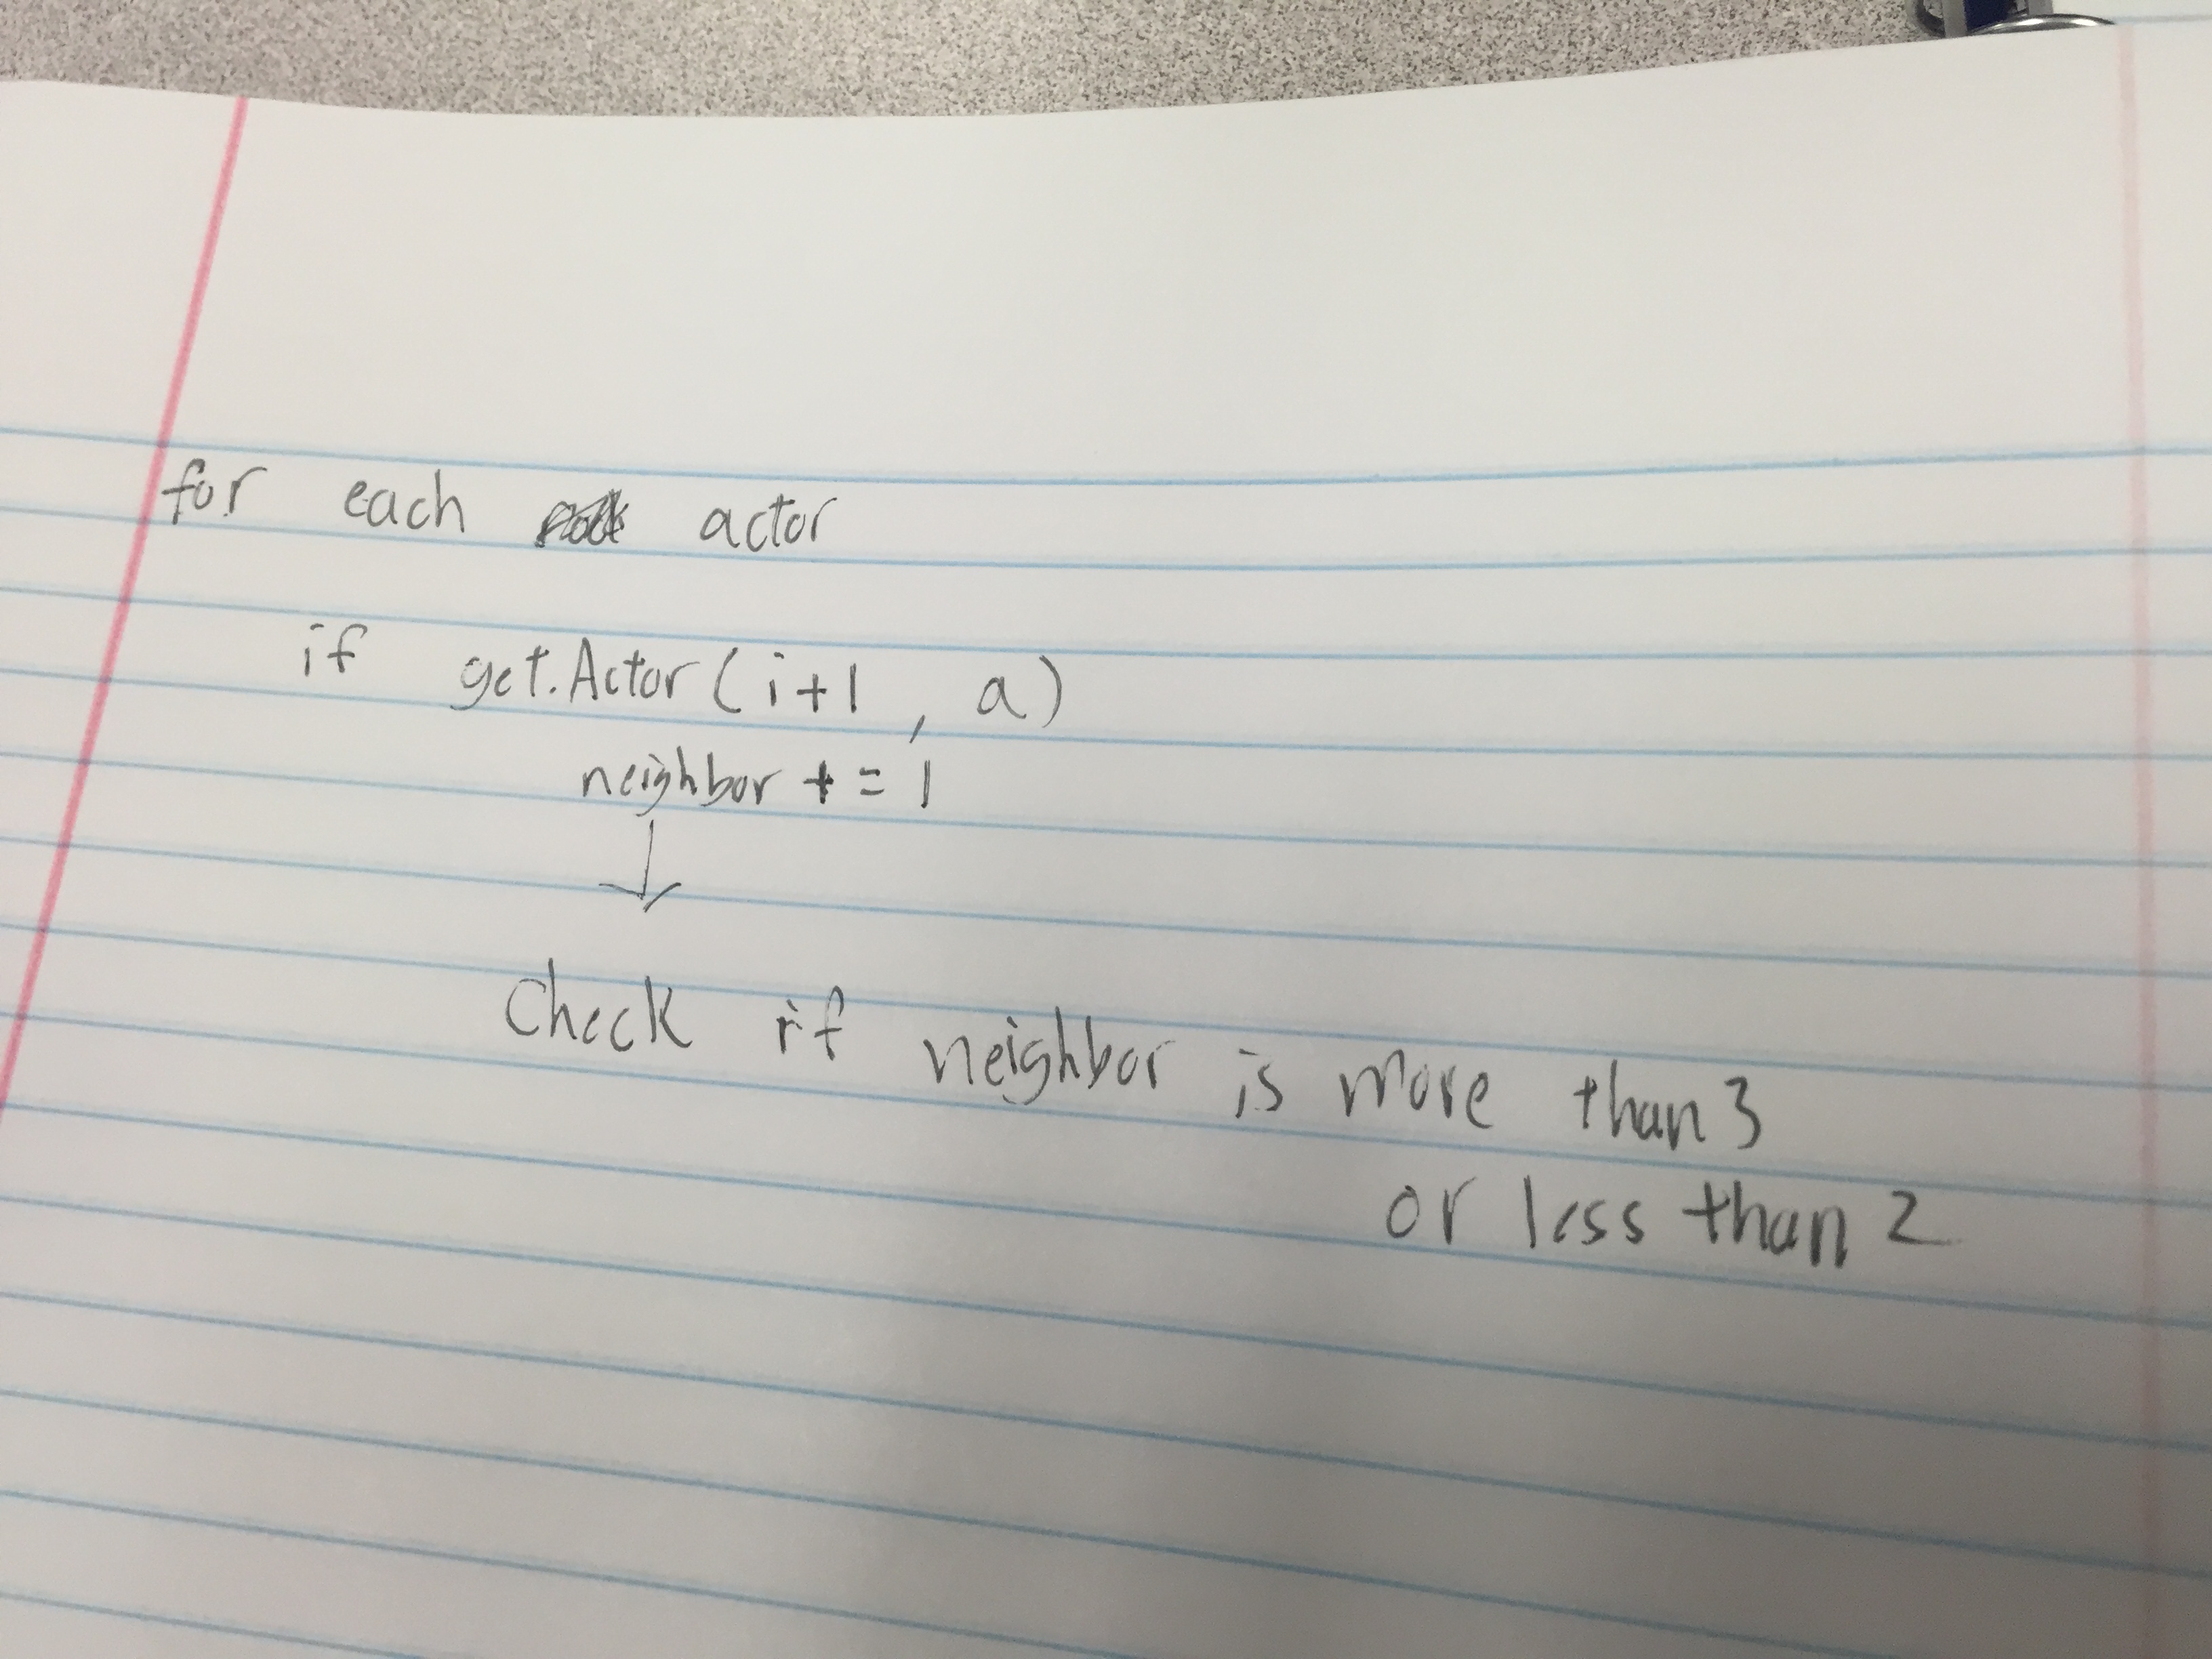 for each actor
if get.Actor(i+1, a)
neighbor += 1
Check if neighbor is more than 3
or less than 2